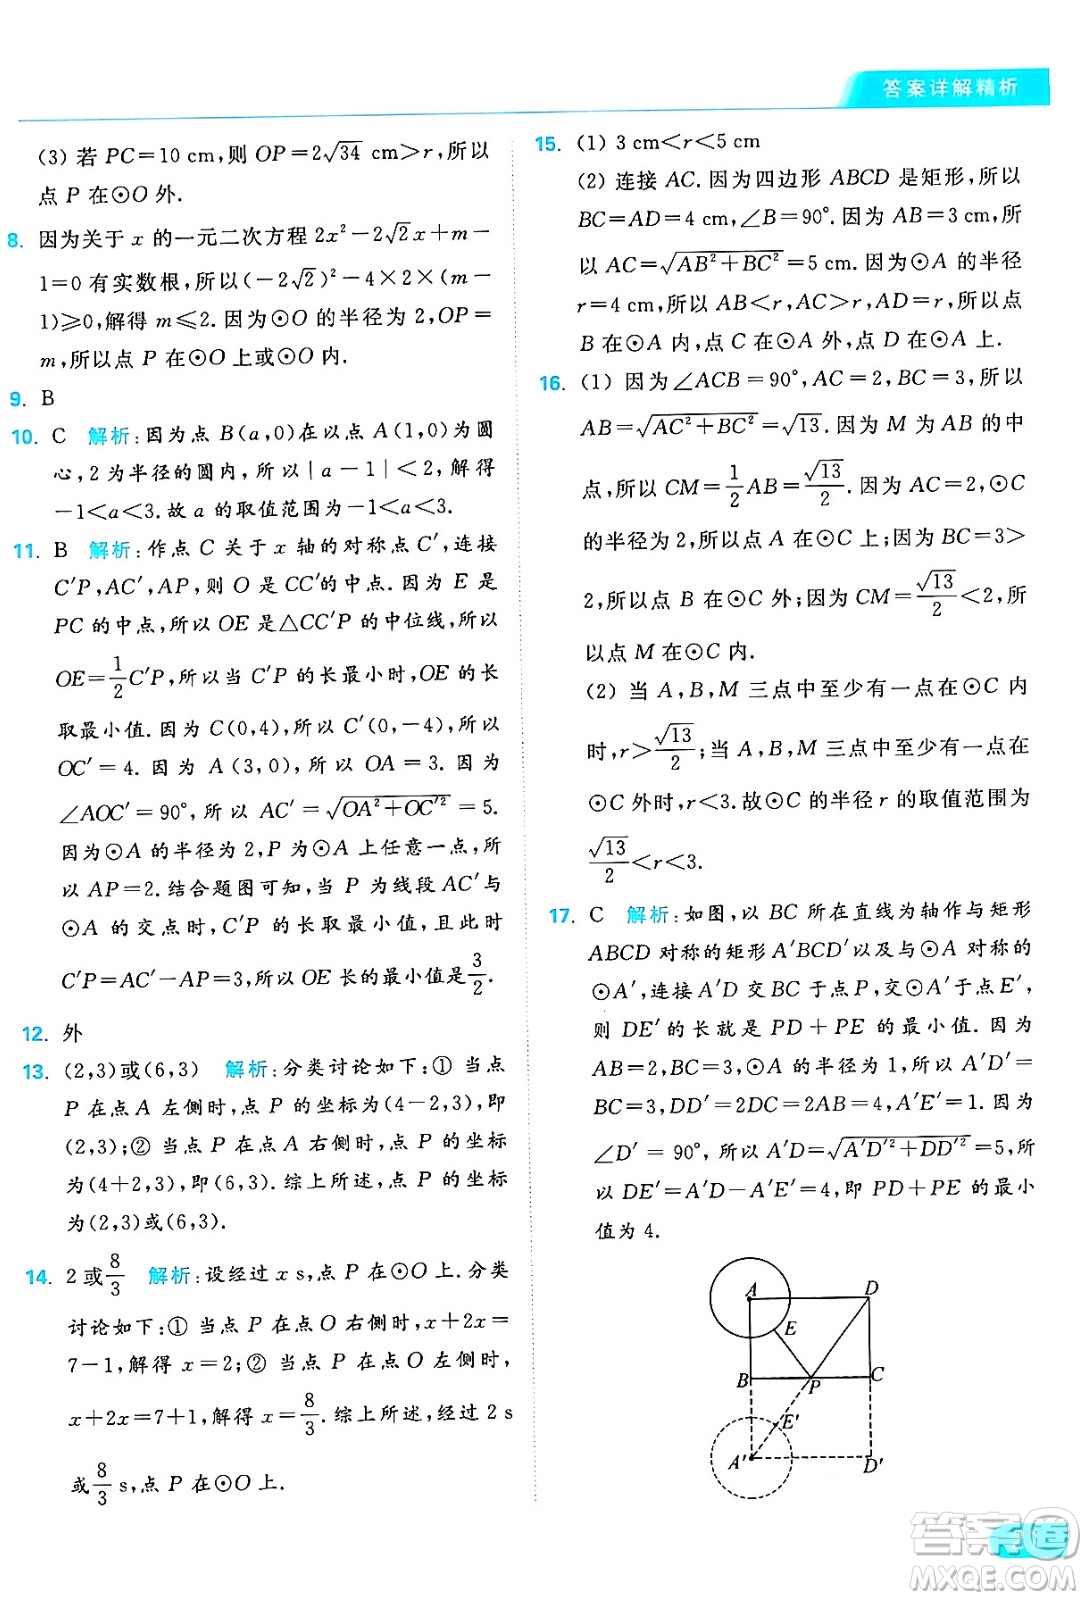 答案详解精析
(3) 若 PC=10 cm,则 OP=2√34 cm>r,所以
点 P 在⊙O 外.
8. 因为关于 x 的一元二次方程 2x²-2√2x+m-
1=0 有实数根,所以(-2√2)²-4×2×(m-
1)≥0,解得 m≤2.因为⊙O 的半径为 2,OP=
m,所以点 P 在⊙O 上或⊙O 内.
9. B
10. C 解析:因为点 B(a,0)在以点 A(1,0)为圆
心,2 为半径的圆内,所以|a-1|<2,解得
-1<a<3.故 a 的取值范围为-1<a<3.
11. B 解析:作点 C 关于 x 轴的对称点 C′,连接
C′P,AC′,AP,则 O 是 CC′的中点.因为 E 是
PC 的中点,所以 OE 是△CC′P 的中位线,所以
OE=1/2C′P,所以当 C′P 的长最小时,OE 的长
取最小值.因为 C(0,4),所以 C′(0,-4),所以
OC′=4.因为 A(3,0),所以 OA=3.因为
∠AOC′=90°,所以 AC′=√(OA²+OC′²)=5.
因为⊙A 的半径为 2,P 为⊙A 上任意一点,所
以 AP=2.结合题图可知,当 P 为线段 AC′与
⊙A 的交点时,C′P 的长取最小值,最小值为
C′P=AC′-AP=3,所以 OE 长的最小值是3/2.
12. 外
13. (2,3)或(6,3) 解析:分类讨论如下:① 当点
P 在点 A 左侧时,点 P 的坐标为(4-2,3),即
(2,3);② 当点 P 在点 A 右侧时,点 P 的坐标
为(4+2,3),即(6,3).综上所述,点 P 的坐标
为(2,3)或(6,3).
14. 2 或8/3 解析:设经过 x s,点 P 在⊙O 上.分类
讨论如下:① 当点 P 在点 O 右侧时,x+2x=
7-1,解得 x=2;② 当点 P 在点 O 左侧时,
x+2x=7+1,解得 x=8/3.综上所述,经过 2 s
或8/3 s,点 P 在⊙O 上.
15. (1) 3 cm<r<5 cm
(2) 连接 AC.因为四边形 ABCD 是矩形,所以
BC=AD=4 cm,∠B=90°.因为 AB=3 cm,所
以 AC=√(AB²+BC²)=5 cm.因为⊙A 的半径
r=4 cm,所以 AB<r,AC>r,AD=r,所以点
B 在⊙A 内,点 C 在⊙A 外,点 D 在⊙A 上.
16. (1) 因为∠ACB=90°,AC=2,BC=3,所以
AB=√(AC²+BC²)=√13.因为 M 为 AB 的中
点,所以 CM=1/2AB=√13/2.因为 AC=2,⊙C
的半径为 2,所以点 A 在⊙C 上;因为 BC=3>
2,所以点 B 在⊙C 外;因为 CM=√13/2<2,所
以点 M 在⊙C 内.
(2) 当 A,B,M 三点中至少有一点在⊙C 内
时,r>√13/2;当 A,B,M 三点中至少有一点在
⊙C 外时,r<3.故⊙C 的半径 r 的取值范围为
√13/2<r<3.
17. C 解析:如图,以 BC 所在直线为轴作与矩形
ABCD 对称的矩形 A′BCD′以及与⊙A 对称的
⊙A′,连接 A′D 交 BC 于点 P,交⊙A′于点 E′,
则 DE′的长就是 PD+PE 的最小值.因为
AB=2,⊙A 的半径为 1,所以 A′D′=
BC=3,DD′=2DC=2AB=4,A′E′=1.因为
∠D′=90°,所以 A′D=√(A′D′²+DD′²)=5,所
以 DE′=A′D-A′E′=4,即 PD+PE 的最小
值为 4.
A
D
E
B
P
C
E′
A′
D′
答案圈
MXQE.COM